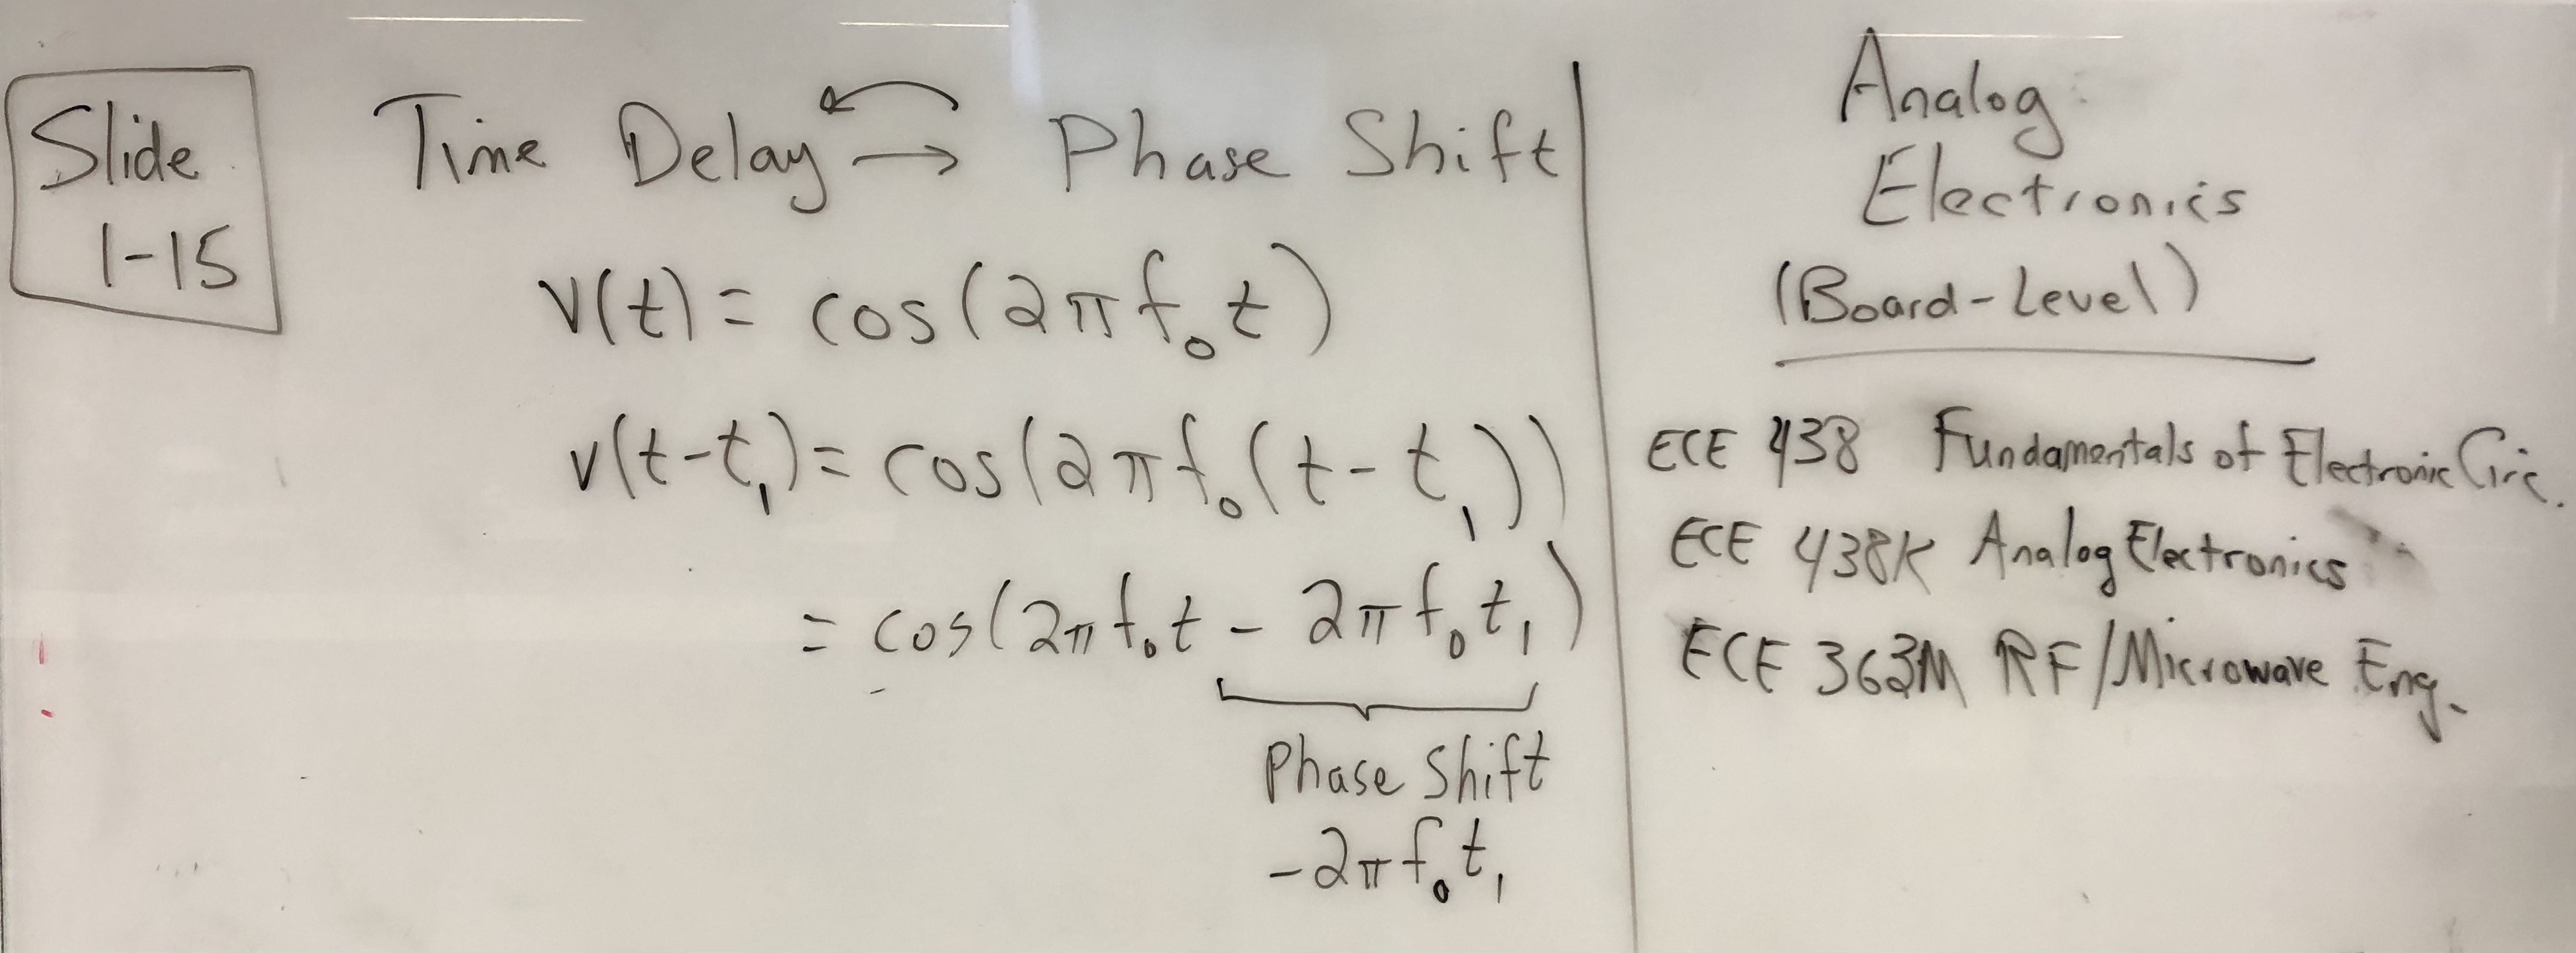 Slide
1-15
Time Delay → Phase Shift
v(t) = cos(2πf₀t)
v(t-t₁) = cos(2πf₀(t-t₁))
= cos(2πf₀t - 2πf₀t₁)
Phase Shift
-2πf₀t₁
Analog
Electronics
(Board-Level)
ECE 438 Fundamentals of Electronic Circ.
ECE 438K Analog Electronics
ECE 363M RF/Microwave Eng.